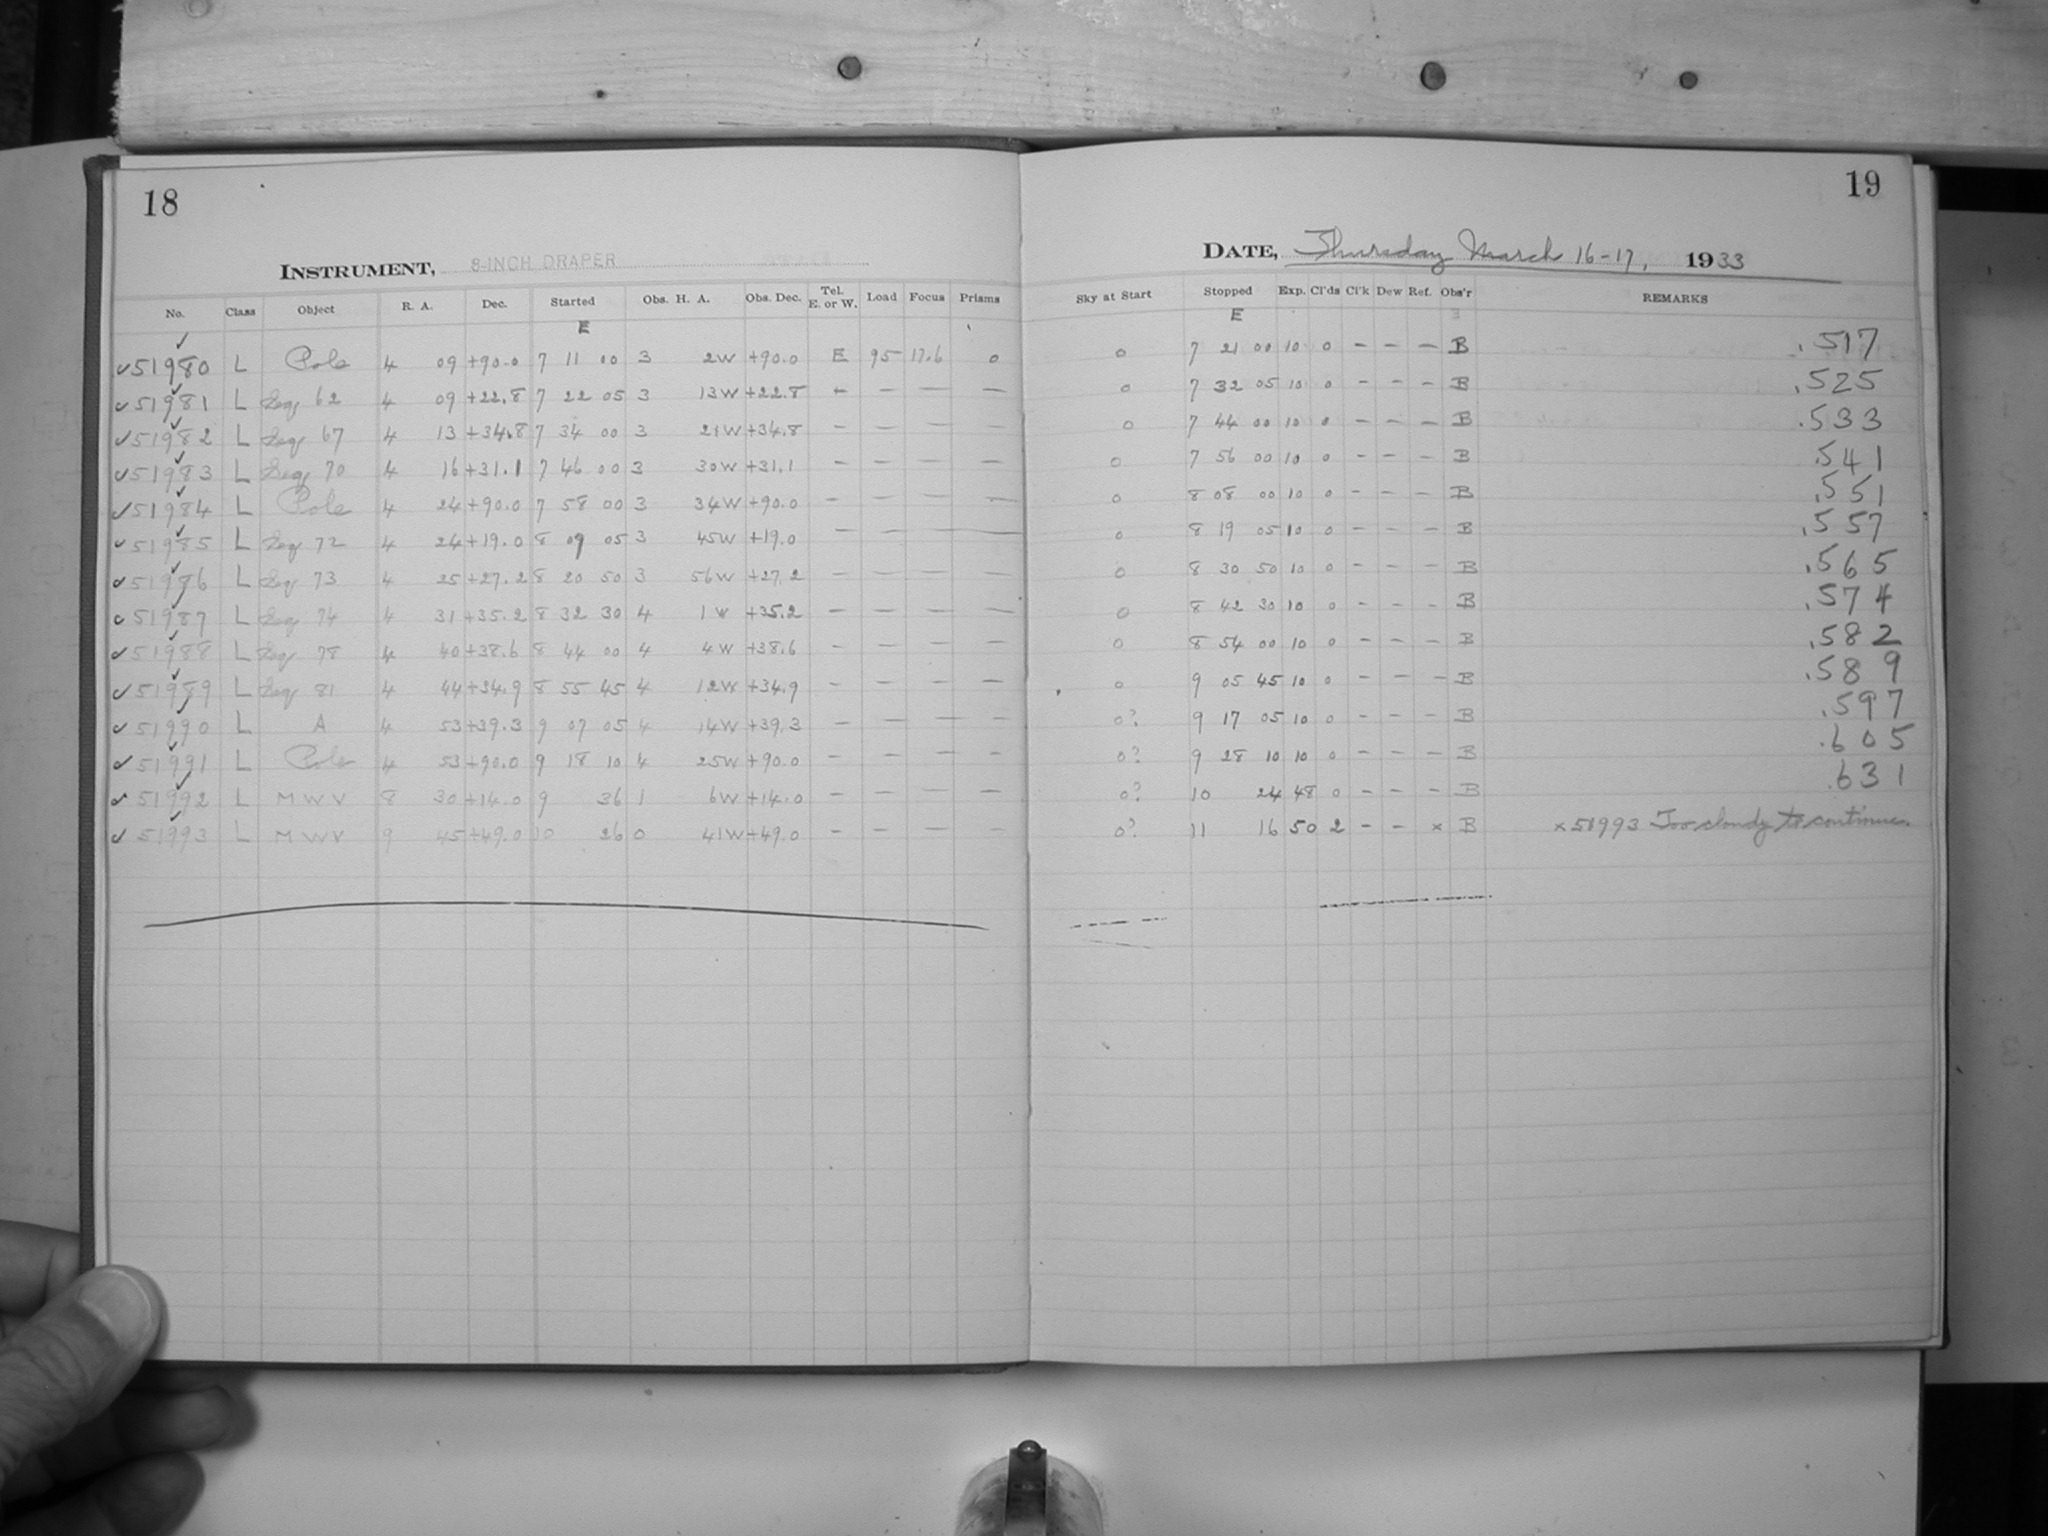 18
19
INSTRUMENT, 8-INCH DRAPER
DATE, Thursday March 16-17, 1933
No. Class Object R. A. Dec. Started Obs. H. A. Obs. Dec. Tel. E. or W. Load Focus Prisms Sky at Start Stopped Exp. Cl'ds Cl'k Dew Ref. Obs'r REMARKS
E E
✓51980 L Pole 4 09 +90.0 7 11 00 3 2W +90.0 E 95 17.6 0 0 7 21 00 10 0 – – – B .517
✓51981 L Seq 62 4 09 +22.8 7 22 05 3 13W +22.8 – – – – 0 7 32 05 10 0 – – – B .525
✓51982 L Seq 67 4 13 +34.8 7 34 00 3 21W +34.8 – – – – 0 7 44 00 10 0 – – – B .533
✓51983 L Seq 70 4 16 +31.1 7 46 00 3 30W +31.1 – – – – 0 7 56 00 10 0 – – – B .541
✓51984 L Pole 4 24 +90.0 7 58 00 3 34W +90.0 – – – – 0 8 08 00 10 0 – – – B .551
✓51985 L Seq 72 4 24 +19.0 8 09 05 3 45W +19.0 – – – – 0 8 19 05 10 0 – – – B .557
✓51986 L Seq 73 4 25 +27.2 8 20 50 3 56W +27.2 – – – – 0 8 30 50 10 0 – – – B .565
✓51987 L Seq 74 4 31 +35.2 8 32 30 4 1W +35.2 – – – – 0 8 42 30 10 0 – – – B .574
✓51988 L Seq 78 4 40 +38.6 8 44 00 4 4W +38.6 – – – – 0 8 54 00 10 0 – – – B .582
✓51989 L Seq 81 4 44 +34.9 8 55 45 4 12W +34.9 – – – – 0 9 05 45 10 0 – – – B .589
✓51990 L A 4 53 +39.3 9 07 05 4 14W +39.3 – – – – 0? 9 17 05 10 0 – – – B .597
✓51991 L Pole 4 53 +90.0 9 18 10 4 25W +90.0 – – – – 0? 9 28 10 10 0 – – – B .605
✓51992 L MWV 8 30 +14.0 9 36 1 6W +14.0 – – – – 0? 10 24 48 0 – – – B .631
✓51993 L MWV 9 45 +49.0 10 26 0 41W +49.0 – – – – 0? 11 16 50 2 – – x B x51993 Too cloudy to continue.